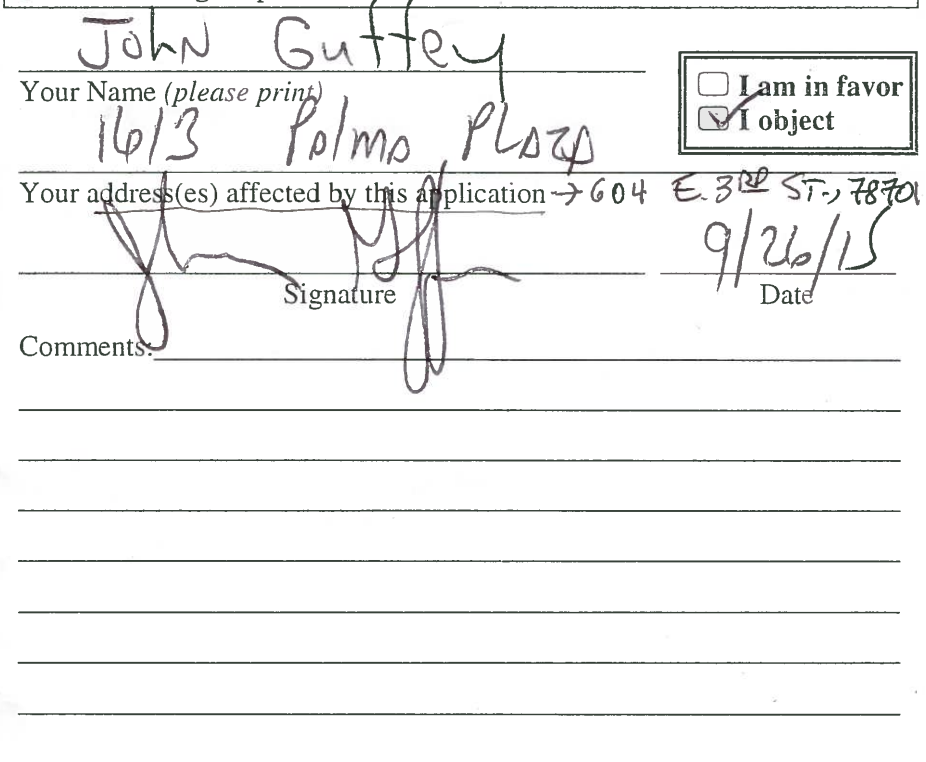 John Guffey
Your Name (please print)
I am in favor
I object
1613 Palma Plaza
Your address(es) affected by this application → 604 E. 3RD ST., 78701
9/26/15
Signature
Date
Comments: